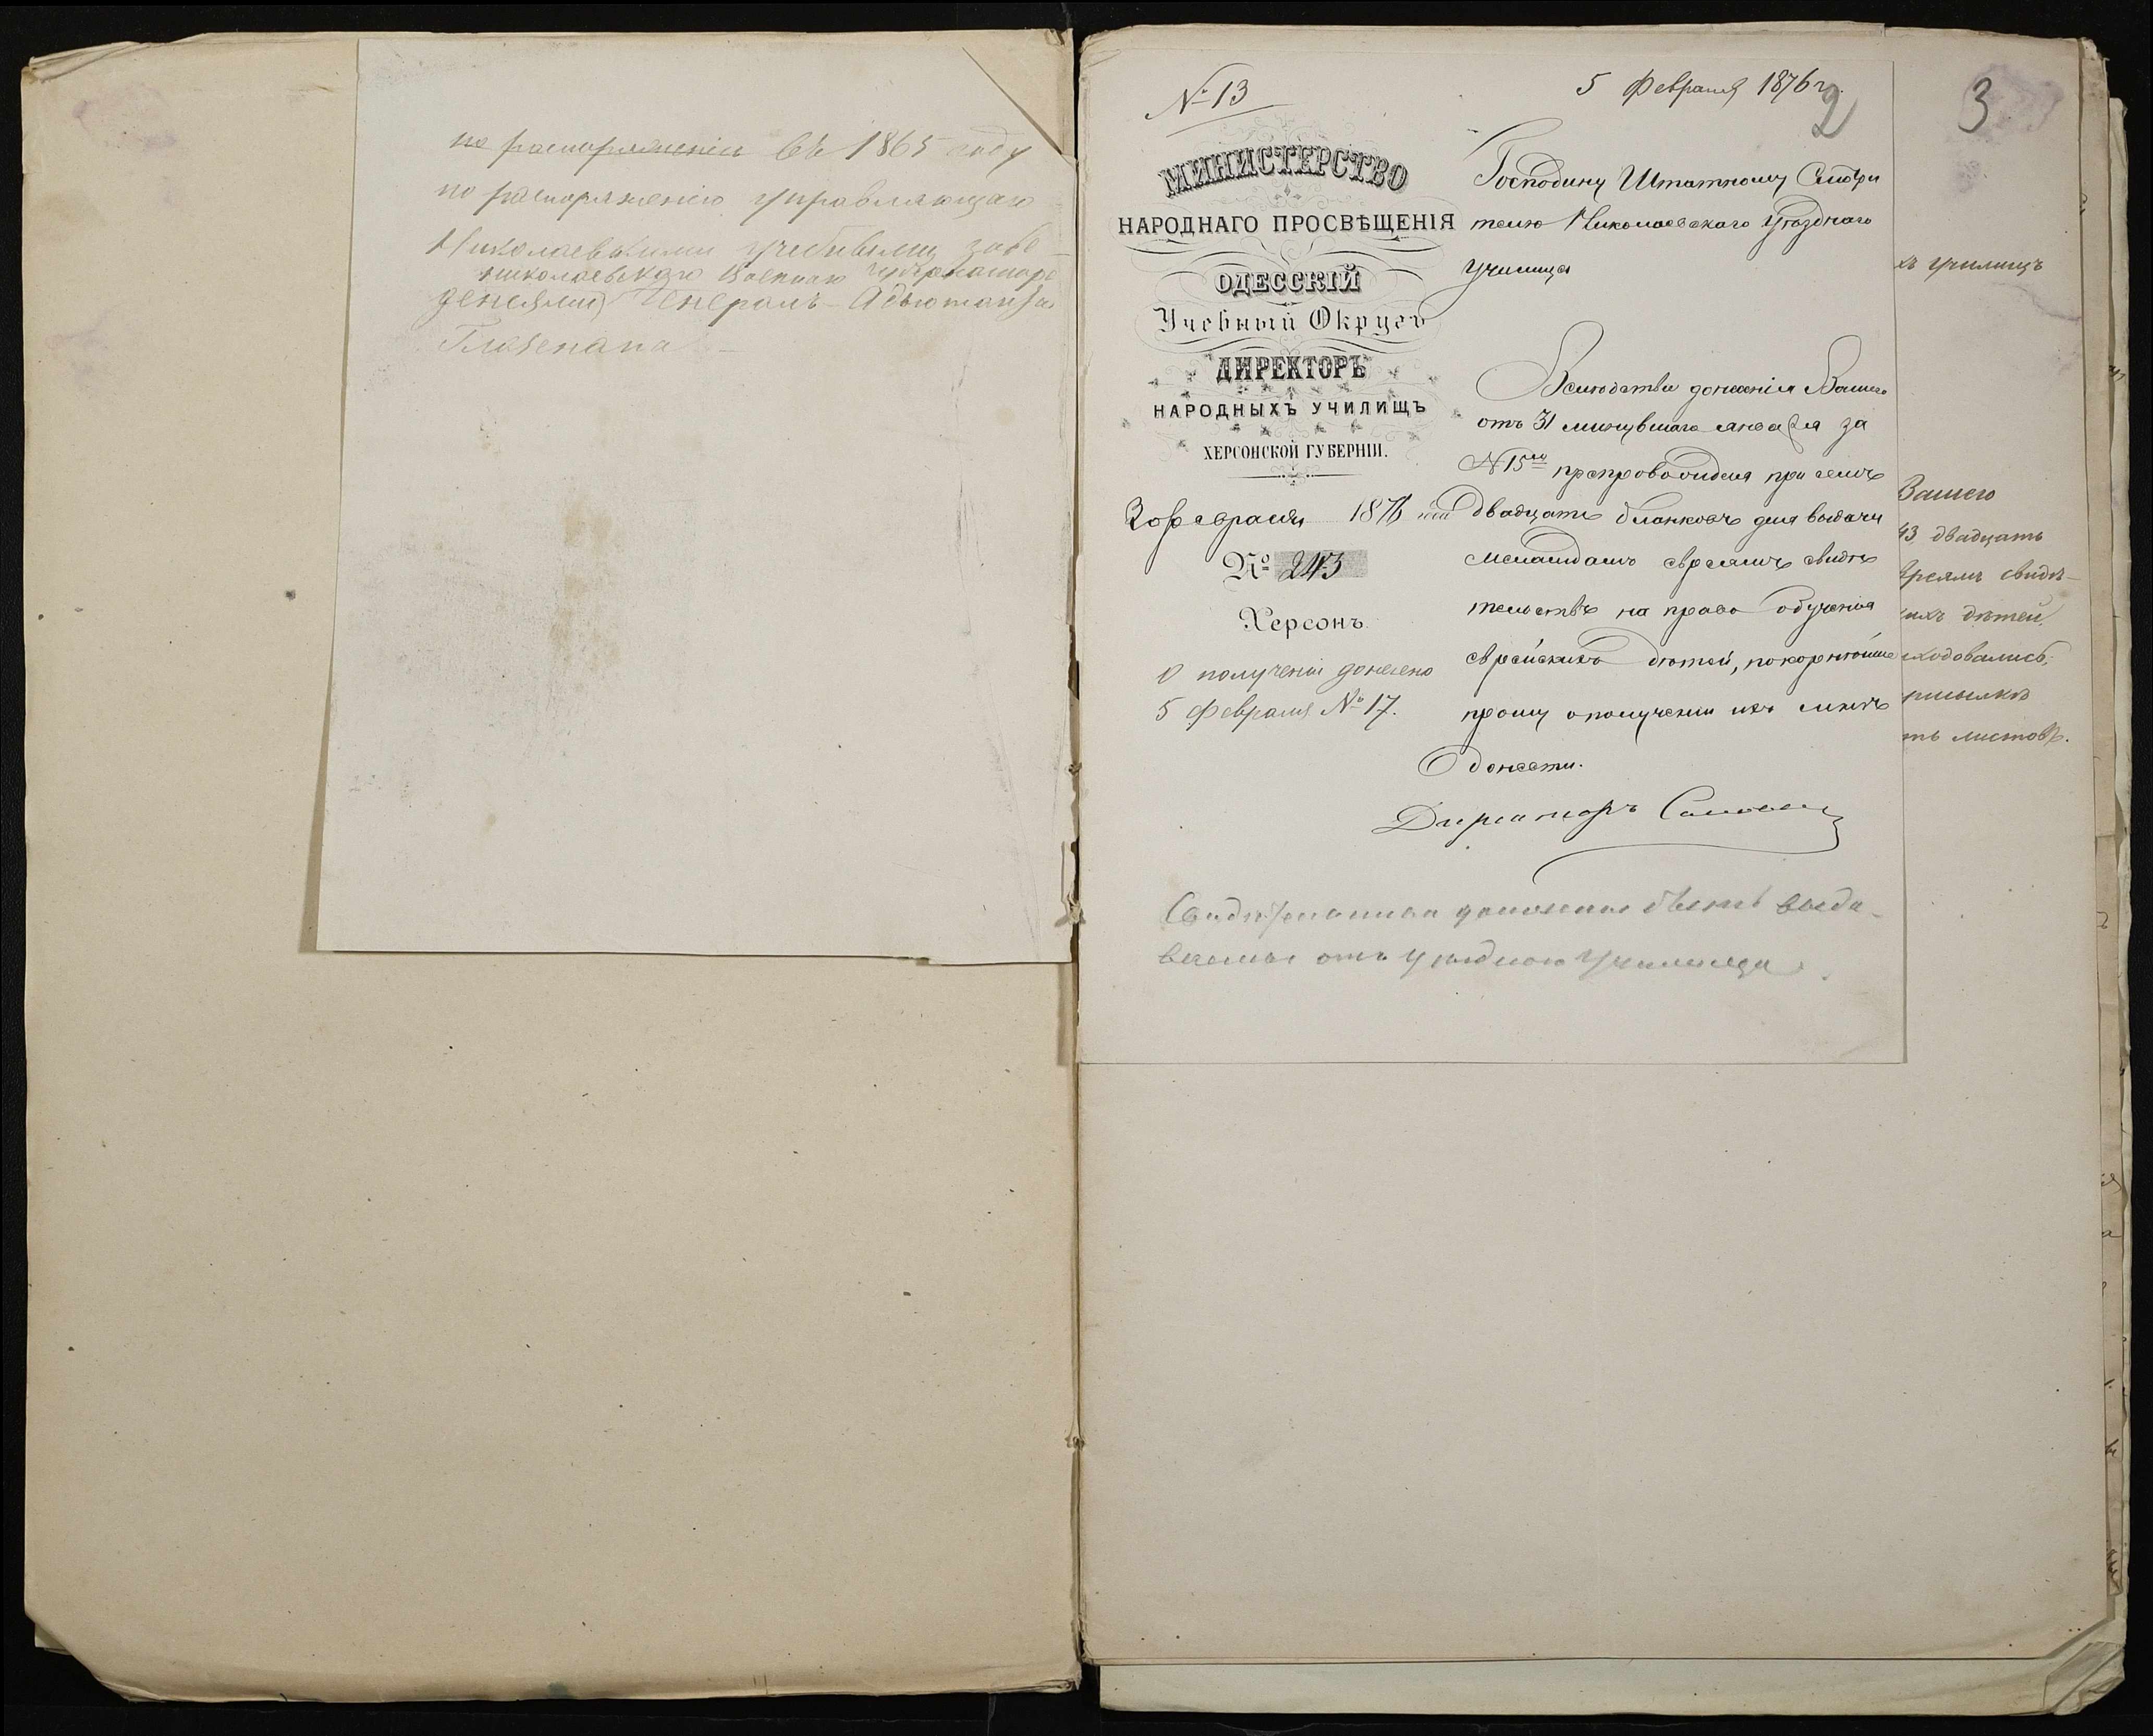 по распоряженію въ 1865 году
по распоряженію управляющаго
Николаевскими учебными заве-
николаевскаго Военнаго Губернатора
деніями Генералъ-Адъютанта
Глазенапа
№ 13
5 Февраля 1876 г.
2
3
МИНИСТЕРСТВО
НАРОДНАГО ПРОСВѢЩЕНІЯ
ОДЕССКІЙ
Учебный Округъ
ДИРЕКТОРЪ
НАРОДНЫХЪ УЧИЛИЩЪ
ХЕРСОНСКОЙ ГУБЕРНІИ.
3 февраля 1876
№ 243
Херсонъ.
О полученіи донесено
5 Февраля № 17.
Господину Штатному Смотри
телю Николаевскаго Уѣзднаго
Училища
Вслѣдствіе донесенія Вашего
отъ 31 минувшаго января за
N 15 препровождая при семъ
двадцать бланковъ для выдачи
меламдамъ евреямъ свидѣ
тельствъ на право обученія
еврейскихъ дѣтей, покорнѣйше
прошу о полученіи ихъ мнѣ
донести.
Директоръ
выда-
ваемы отъ уѣзднаго училища
хъ училищъ
Вашего
43 двадцать
вреямъ свидѣ-
ихъ дѣтей,
сходовались,
рисылкѣ
ть листовъ.